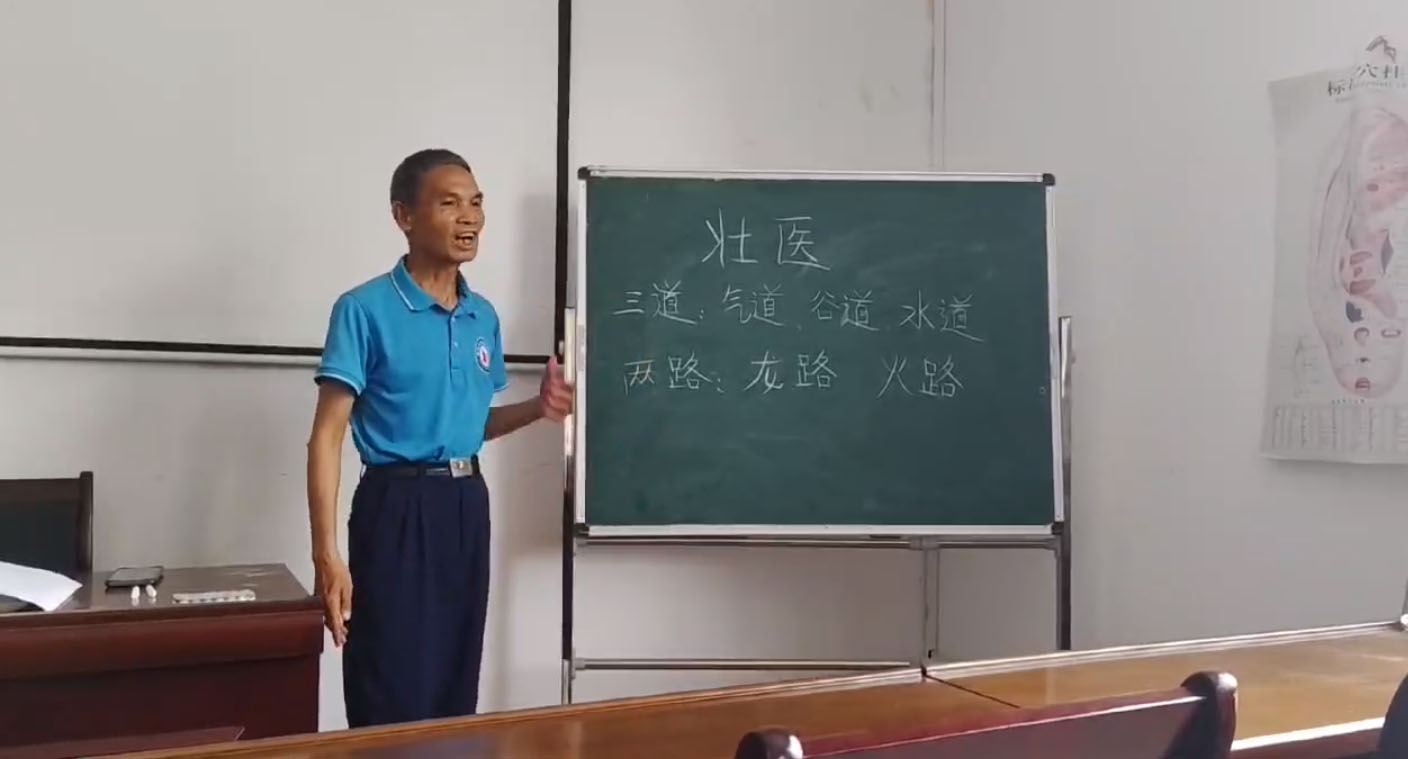 壮医
三道：气道、谷道、水道
两路：龙路 火路